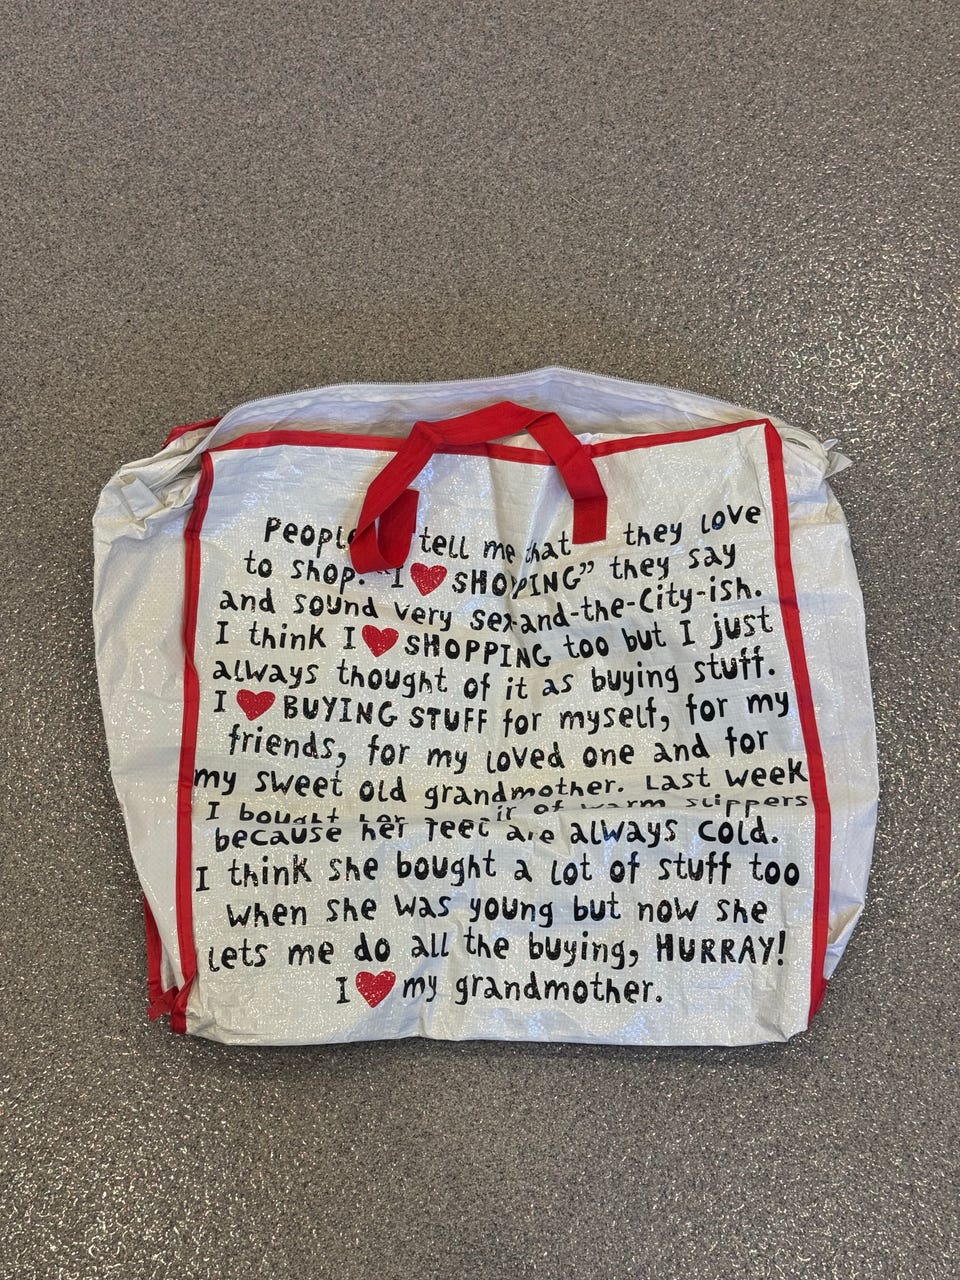 People tell me that they love
to shop. "I ❤ SHOPPING" they say
and sound very sex-and-the-City-ish.
I think I ❤ SHOPPING too but I just
always thought of it as buying stuff.
I ❤ BUYING STUFF for myself, for my
friends, for my loved one and for
my sweet old grandmother. Last week
I bought her pair of warm slippers
because her feet are always cold.
I think she bought a lot of stuff too
when she was young but now she
lets me do all the buying, HURRAY!
I ❤ my grandmother.